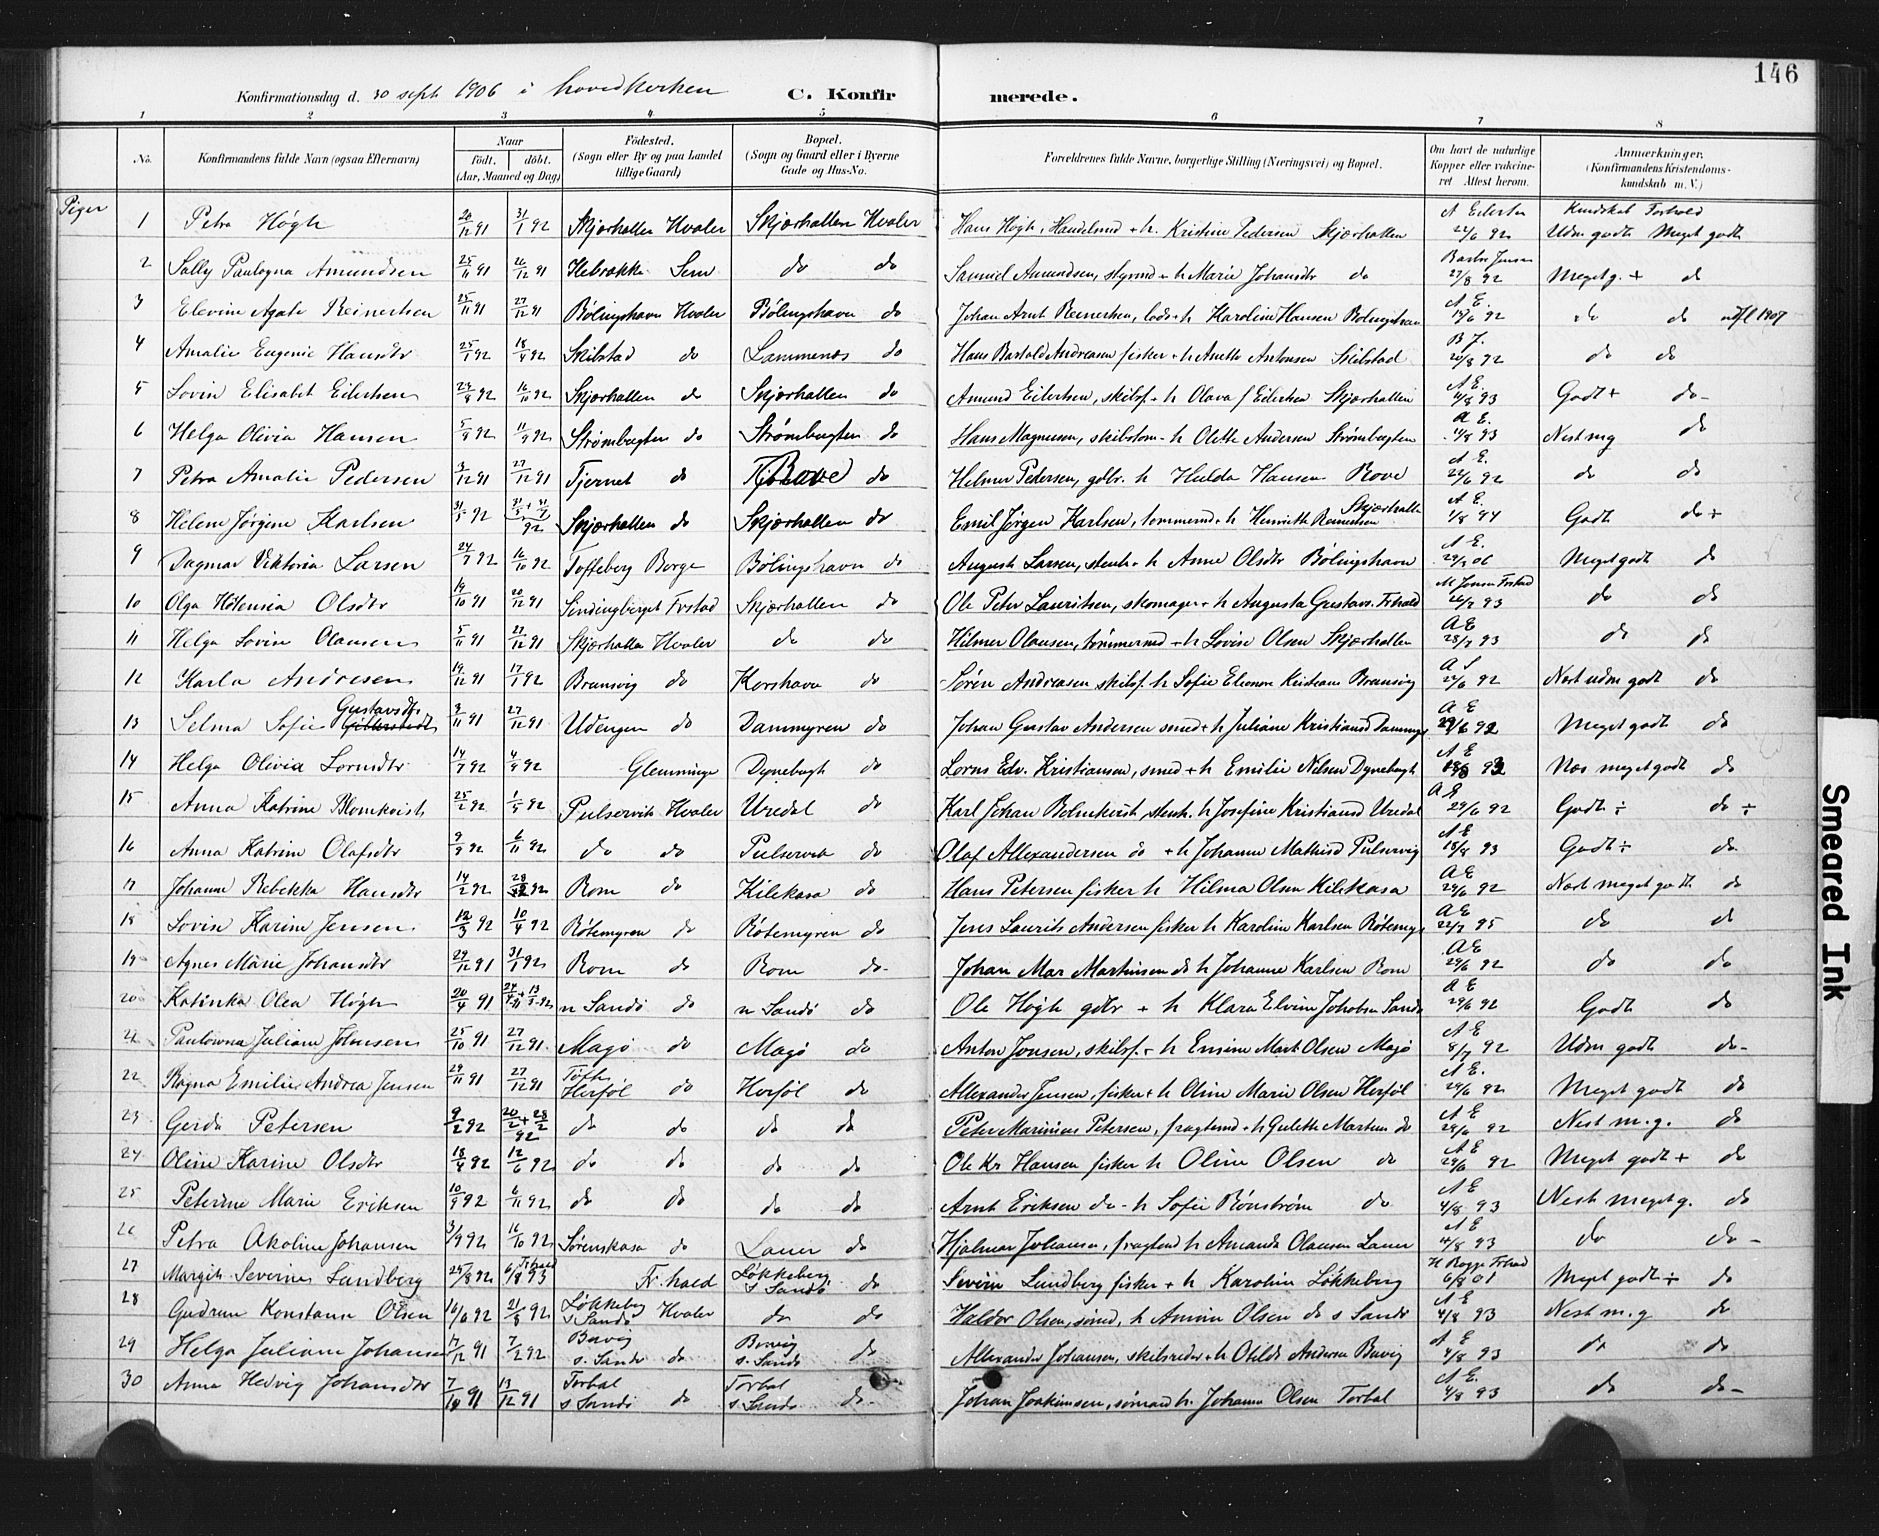 146
Konfirmationsdag d. 30 sept. 1906 i hovedkirken C. Konfirmerede.
1 2 3 4 5 6 7 8
No. Konfirmandens fulde Navn (ogsaa Efternavn) Naar født. døbt. (Aar, Maaned og Dag) Fødested. (Sogn eller By og paa Landet tillige Gaard) Bopæl. (Sogn og Gaard eller i Byerne Gade og Hus-No. Forældrenes fulde Navne, borgerlige Stilling (Næringsvei) og Bopæl. Om havt de naturlige Kopper eller vaccineret Attest herom. Anmærkninger. (Konfirmandens Kristendomskundskab m. V.)
Piger
1 Petra Høgh 20/12 91 31/1 92 Skjærhallen Hvaler Skjærhallen Hvaler Hans Høgh, Handelsmd + h. Kristine Pedersen Skjærhallen A Eilertsen 24/6 92 Kundskab Forhold Udm godt Meget godt
2 Sally Paulogna Amundsen 25/11 91 26/12 91 Sem do do Samuel Amundsen, styrmd + h Marie Johansdtr do 27/8 92 Meget g. + do
3 Elevine Agate Reinertsen 25/11 91 27/12 91 Bølingshavn Hvaler Bølingshavn do Johan Arnt Reinertsen, lods + h Karoline Hansen Bølingshavn A E. 92 do do 1907
4 Amalie Eugenie Hansdtr 25/1 92 18/4 92 Skibstad do Lammenes do Hans Bartold Andreasen fisker + h Anette Antonsen Skibstad B J. 20/8 92 do do
5 Lovise Elisabet Eilertsen 24/8 92 16/10 92 Skjærhallen do Skjærhallen do Amund Eilertsen, skibsf. + h Olava f Eilertsen Skjærhallen A E. 4/8 93 Godt + do
6 Helga Olivia Hansen 5/9 92 11/9 92 Strømbugten do Strømbugten do Hans Magnusen, skibstøm. h Olette Andersen Strømbugten A E. 4/8 93 Nest mg do
7 Petra Amalie Pedersen 3/12 91 27/12 91 Tjernet do Rove do Helmer Pedersen, gdbr. h Hulda Hansen Rove A E. 24/6 92 do do
8 Helene Jørgine Karlsen 31/5 92 92 Skjærhallen do Skjærhallen do Emil Jørgen Karlsen, tømmermd + h Henriette Reinertsen Skjærhallen A E. 1/8 94 Godt do +
9 Dagmar Viktoria Larsen 24/7 92 16/10 92 Tofteberg Borge Bølingshavn do August Larsen, stenh. + h Anne Olsdtr Bølingshavn A E. 06 Meget godt do
10 Olga Hortensia Olsdtr 19/10 91 20/12 91 Skjærhallen do Ole Peter Lauritsen, skomager + h Augusta Gustavs. Frhald 26/2 93 do do
11 Helga Lovise Olausen 5/11 91 27/12 91 Skjærhallen Hvaler do do Hilmer Olausen, tømmermd + h Lovise Olsen Skjærhallen A E 28/2 93 do do
12 Karla Andresen 19/12 91 17/1 92 Brunsvig do Korshavn do Søren Andreasen skibsf. h Sofie Eleonore Kristians Brunsvig 24/6 92 Nest udm godt do
13 Selma Sofie Gustavsdtr 3/11 91 27/12 91 Udengen do Dammyren do Johan Gustav Andersen smed + h Juliane Kristiansd Dammyr A E 92 Meget godt do
14 Helga Olivia Lornsdtr 14/7 92 4/9 92 Glemminge Dynebugt do Lorns Edv. Kristiansen, smed + h Emilie Nelsen Dynebugt A E Nes meget godt do
15 Anna Katrine Blomkvist 25/2 92 1/5 92 Pulservik Hvaler Uredal do Karl Johan stenh. h Josefine Kristiansd Uredal A E 29/6 92 Godt ÷ do ÷
16 Anna Katrine Olafsdtr 9/9 92 6/11 92 do do Pulservik do Olaf Allexandersen do + h Johanne Mathisd Pulservig A E 18/8 93 Godt ÷ do
17 Johanne Rebekka Hansdtr 14/2 92 92 Rom do Kilekasa do Hans Petersen fisker h Hilma Olsen Kilekasa A E 29/6 92 Nest meget godt do
18 Lovise Karine Jensen 12/3 92 10/4 92 Røtemyren do Røtemyren do Jens Laurits Andersen fisker h Karoline Karlsen Røtemyr A E 22/7 95 do do
19 Agnes Marie Johansdtr 29/12 91 31/1 92 Rom do Rom do Johan Mar Martinsen do h Johanne Karlsen Rom A E 29/6 92 do do
20 Katinka Olea Høgh 20/4 91 n Sandø do n Sandø do Ole Høgh gdbr + h Klara Elvine Jakobsen Sandø A E 29/6 92 Godt do
21 Paulowna Juliane Johnsen 25/10 91 27/12 91 Magø do Magø do Anton Jonsen, skibsf. + h Ensine Mart. Olsen Magø A E 8/7 92 Udm godt do
22 Ragna Emilie Andrea Jensen 29/11 91 27/12 91 Toft Herføl do Herføl do Allexander Jensen, fisker + h Oline Marie Olsen Herføl A E. 29/6 92 Meget godt do
23 Gerda Petersen 9/2 92 20/2 + 28/2 92 do do do do Peter Marinius Petersen, fragtemd + h Gulette Martins do A E 29/6 92 Nest m.g. do
24 Oline Karine Olsdtr 18/4 92 12/6 92 do do do do Ole Kr Hansen fisker h Oline Olsen do A E 29/6 92 Meget godt + do
25 Peterine Marie Eriksen 10/9 92 6/11 92 do do do do Arnt Eriksen do h Sofie Rønstrøm do A E 4/8 93 Nest meget g. do
26 Petra Akoline Johansen 3/9 92 16/10 92 Sørenskasa do Lauer do Hjalmar Johansen, fragtemd h Amanda Olausen Lauer A E 4/8 93 do do
27 Margit Severine Lundberg 25/8 92 6/8 93 Fr.hald Løkkeberg s Sandø do Severin Lundberg fisker + h Karoline Løkkeberg 6/8 01 Meget godt ÷ do
28 Gudrun Konstanse Olsen 16/6 92 21/8 92 Løkkeberg s Sandø Hvaler do do Haldor Olsen, sømd, h Amine Olsen do s Sandø A E 4/8 93 Nest m. g do
29 Helga Juliane Johansen 17/12 91 7/2 92 Buvig s. Sandø do Buvig s. Sandø do Allexander Johansen, skibsreder + h Otilde Andersen Buvig A E 4/8 93 do do
30 Anna Hedvig Johansdtr 7/10 91 13/12 91 Torbal s Sandø do Torbal s Sandø do Johan Joakimsen, sømand h. Johanne Olsen Torbal A E. 4/8 93 do do
Smeared Ink